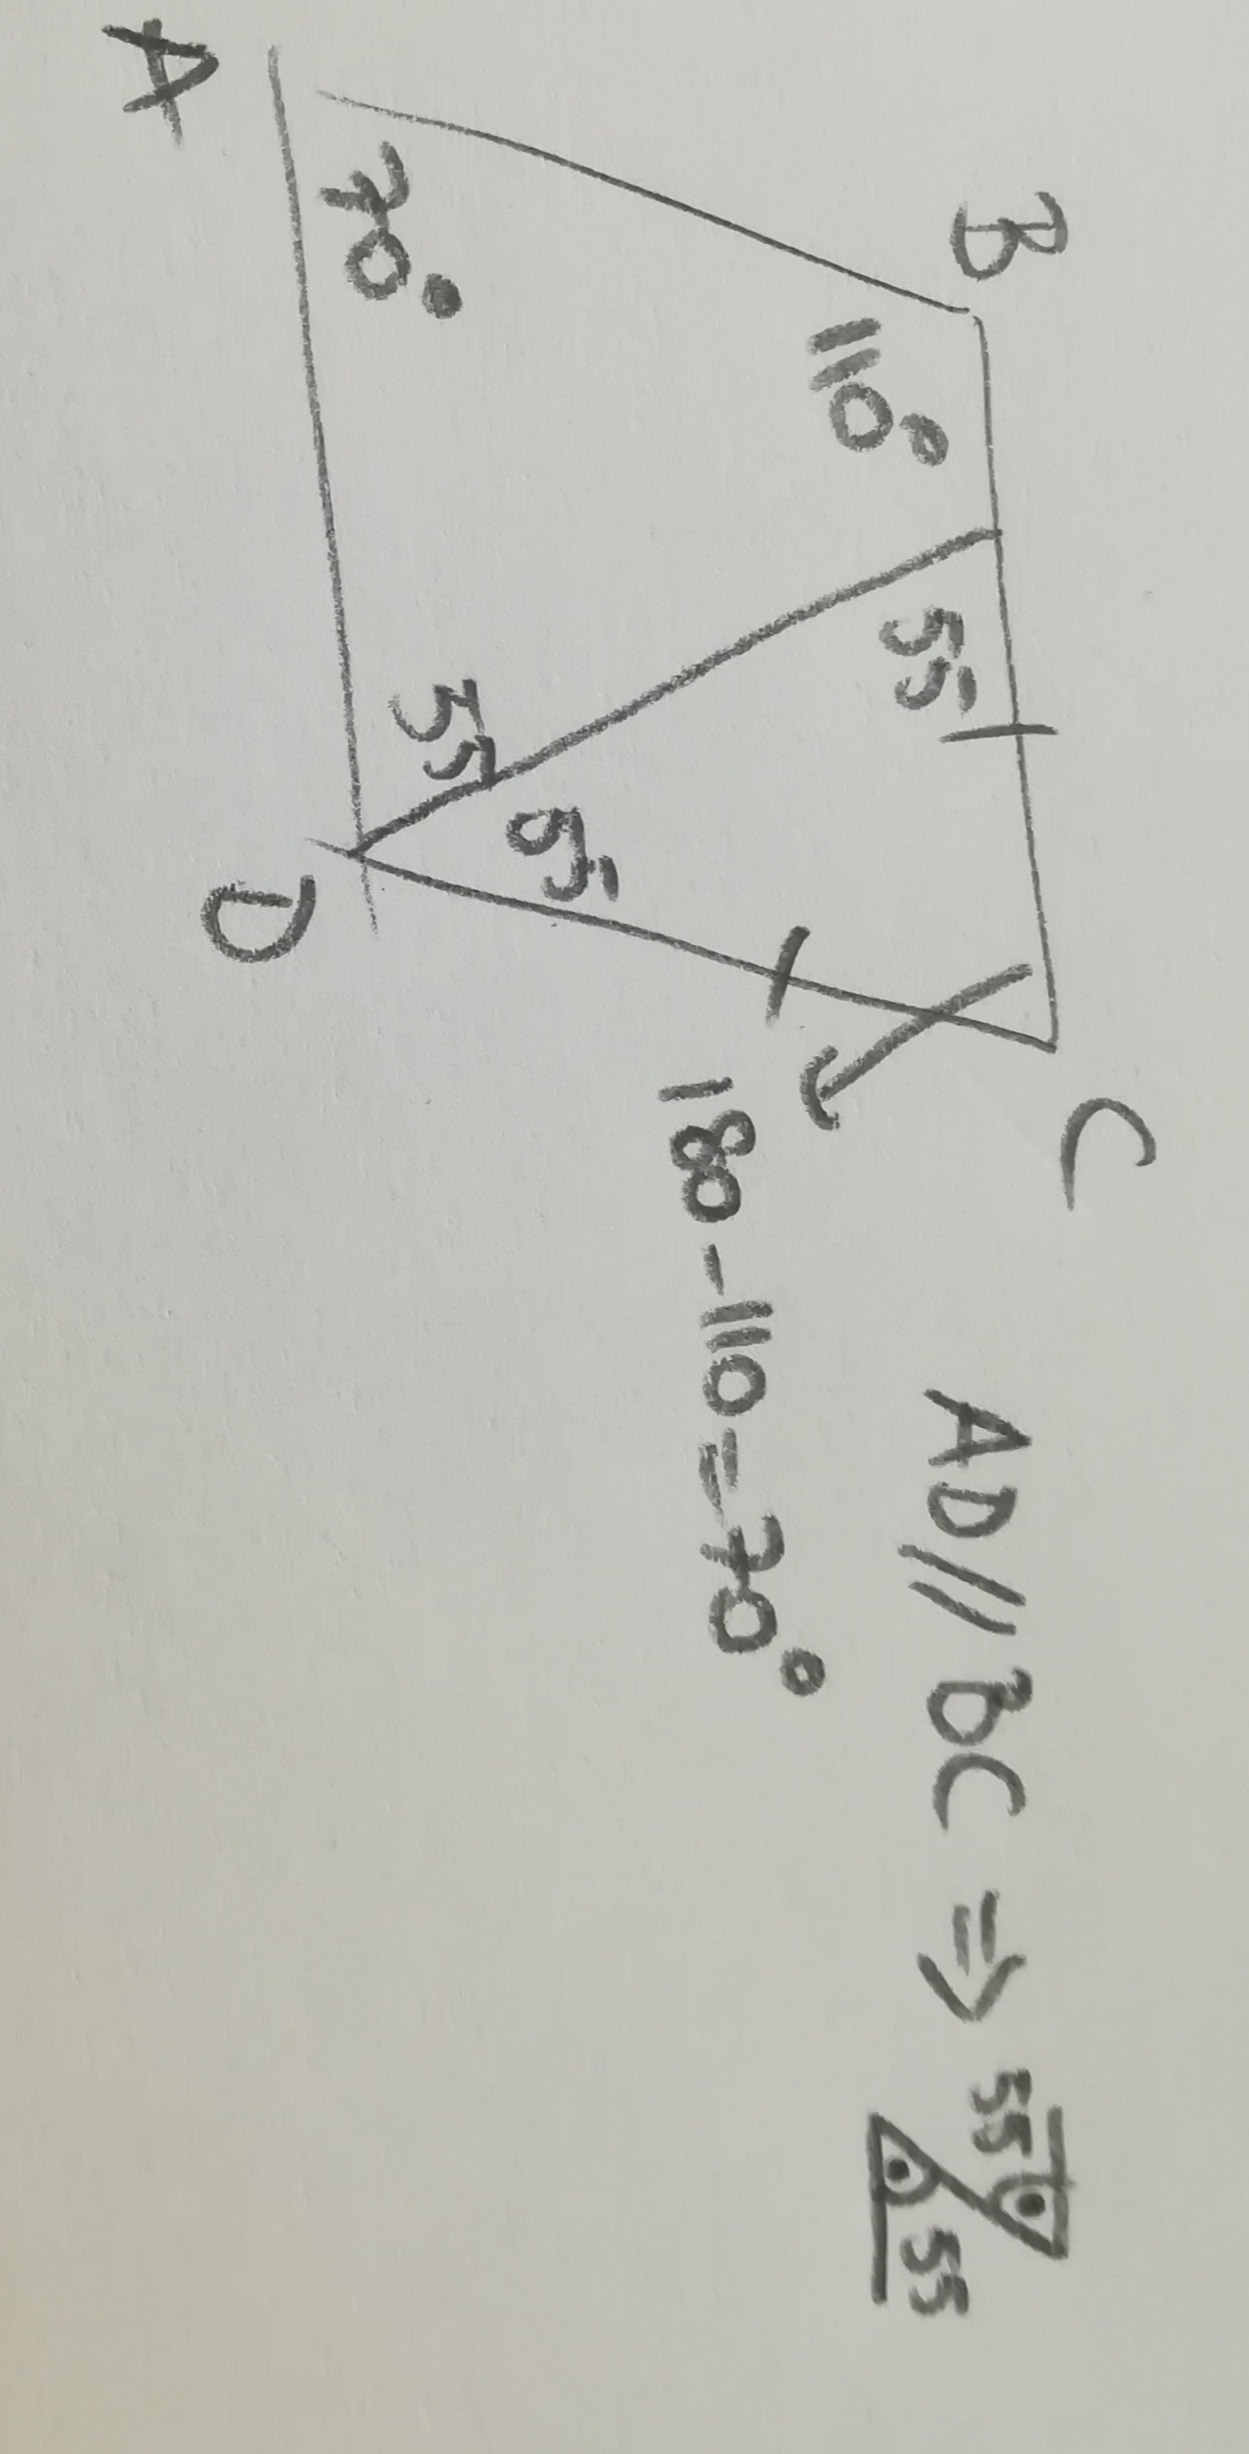 B
C
AD//BC ⇒ 55 55
110°
55
180-110=70°
70°
55
55
A
D